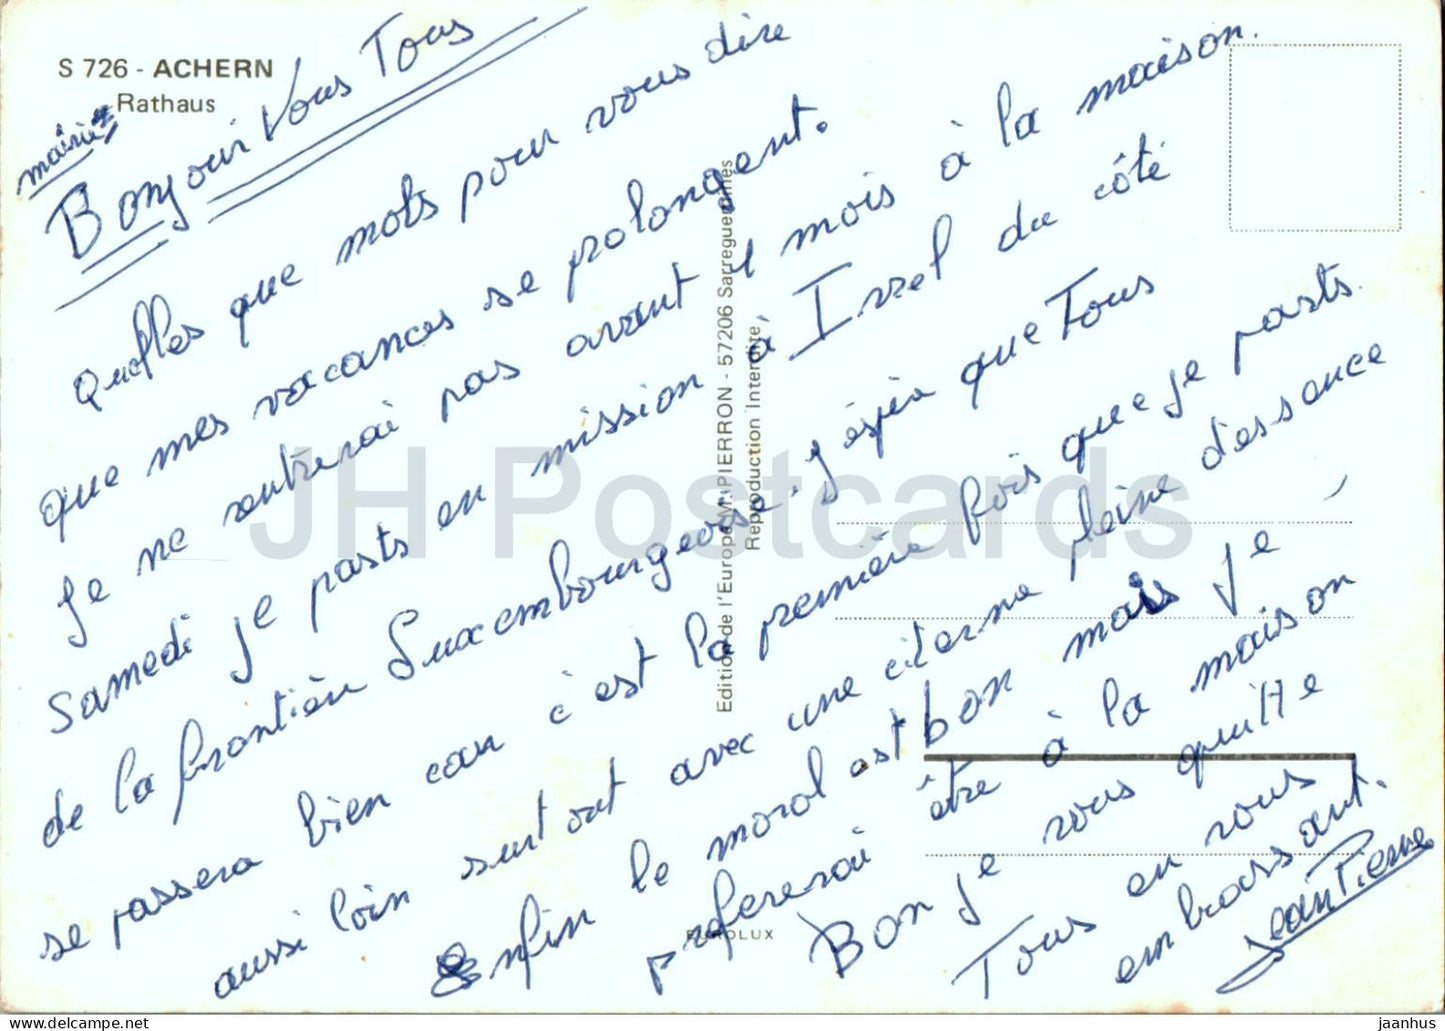 S 726 - ACHERN
Rathaus
mairie
Bonjour Vous Tous
Quelles que mots pour vous dire
que mes vacances se prolongent.
Je ne rentrerai pas avant 1 mois à la maison.
Samedi je parts en mission à Irrel du côté
de la frontière Luxembourgeoise. J'espèr que Tous
se passera bien car c'est la première fois que je parts
aussi loin surtout avec une citerne pleine d'essence
Enfin le moral est bon mais je
prefererai être à la maison
Bon je vous quitte
Tous en vous
embrassant.
Jean Pierre
Edition de l'Europe M. PIERRON - 57206 Sarreguemines
Reproduction Interdite
EUROLUX
JH Postcards
jaanhus
delcampe.net